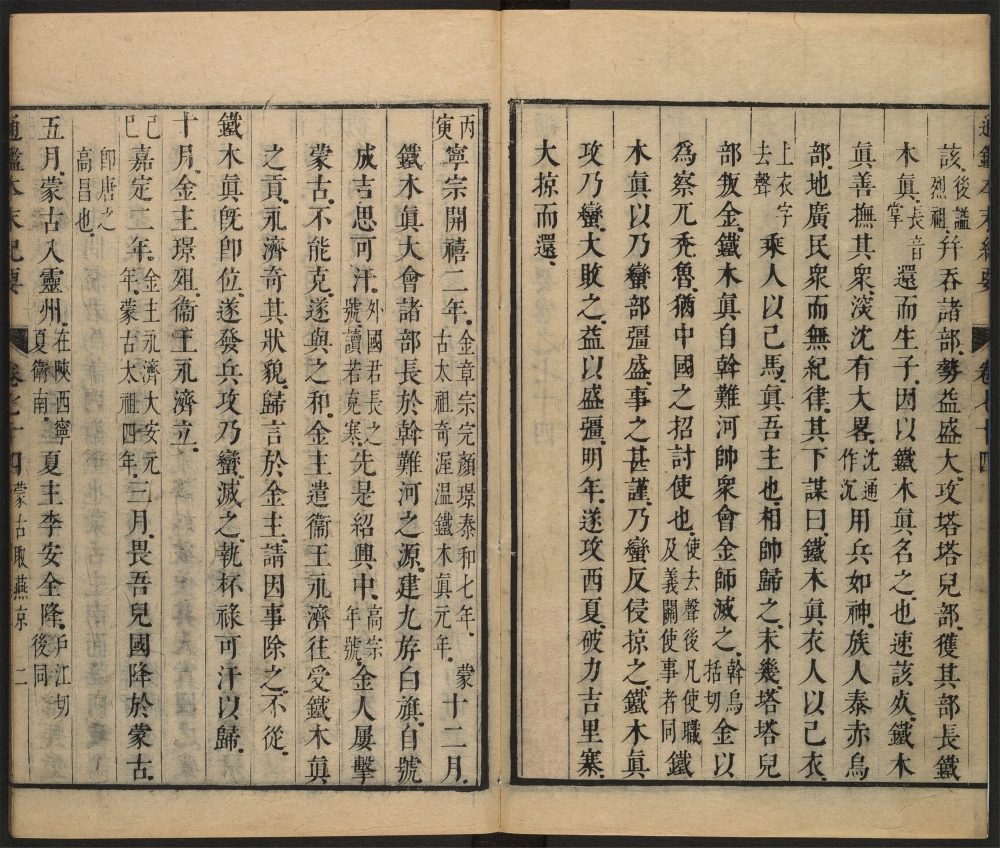 通鑑本末紀要 卷七十四
該後謚烈祖幷吞諸部勢益盛大攻塔塔兒部獲其部長鐵
木眞長音掌還而生子因以鐵木眞名之也速該歿鐵木
眞善撫其衆深沈有大畧沈通作沉用兵如神族人泰赤烏
部地廣民衆而無紀律其下謀曰鐵木眞衣人以己衣
上衣字去聲乘人以己馬眞吾主也相帥歸之未幾塔塔兒
部叛金鐵木眞自斡難河帥衆會金師滅之斡烏括切金以
爲察兀禿魯猶中國之招討使也使去聲後凡使職及義關使事者同鐵
木眞以乃蠻部彊盛事之甚謹乃蠻反侵掠之鐵木眞
攻乃蠻大敗之益以盛彊明年遂攻西夏破力吉里寨
大掠而還
丙寅寧宗開禧二年金章宗完顏璟泰和七年蒙古太祖奇渥温鐵木眞元年十二月
鐵木眞大會諸部長於斡難河之源建九斿白旗自號
成吉思可汗外國君長之號讀若克寒先是紹興中高宗年號金人屢擊
蒙古不能克遂與之和金主遣衞王永濟往受鐵木眞
之貢永濟奇其狀貌歸言於金主請因事除之不從
鐵木眞旣卽位遂發兵攻乃蠻滅之執杯祿可汗以歸
十月金主璟殂衞王永濟立
己巳嘉定二年金主永濟大安元年蒙古太祖四年三月畏吾兒國降於蒙古
卽唐之高昌也
五月蒙古入靈州在陝西寧夏衞南夏主李安全降戸江切後同
通鑑本末紀要 卷七十四 蒙古取燕京 二